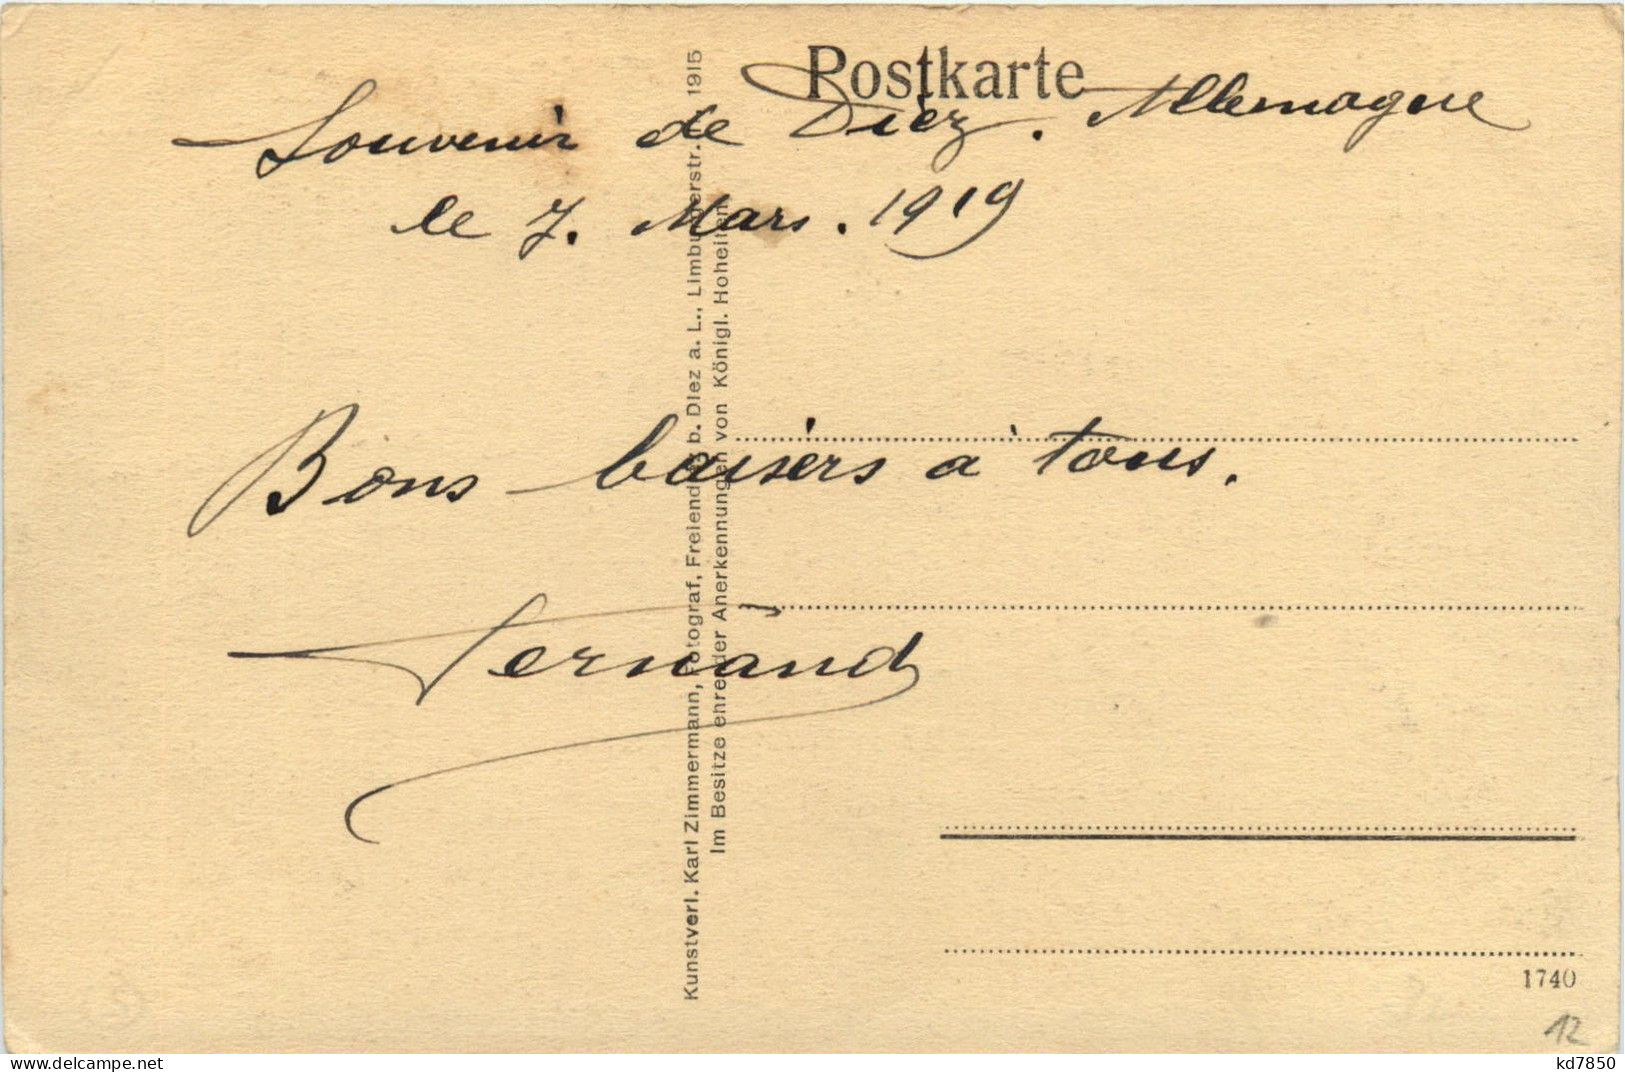 Postkarte
Souvenir de Diez. Allemagne
le 7. Mars. 1919
Bons baisers à tous.
Fernand
Kunstverl. Karl Zimmermann, Fotograf, Freiendiez b. Diez a. L., Limburgerstr. 1915
Im Besitze ehrender Anerkennungen von Königl. Hoheiten
1740
12
www.delcampe.net
kd7850